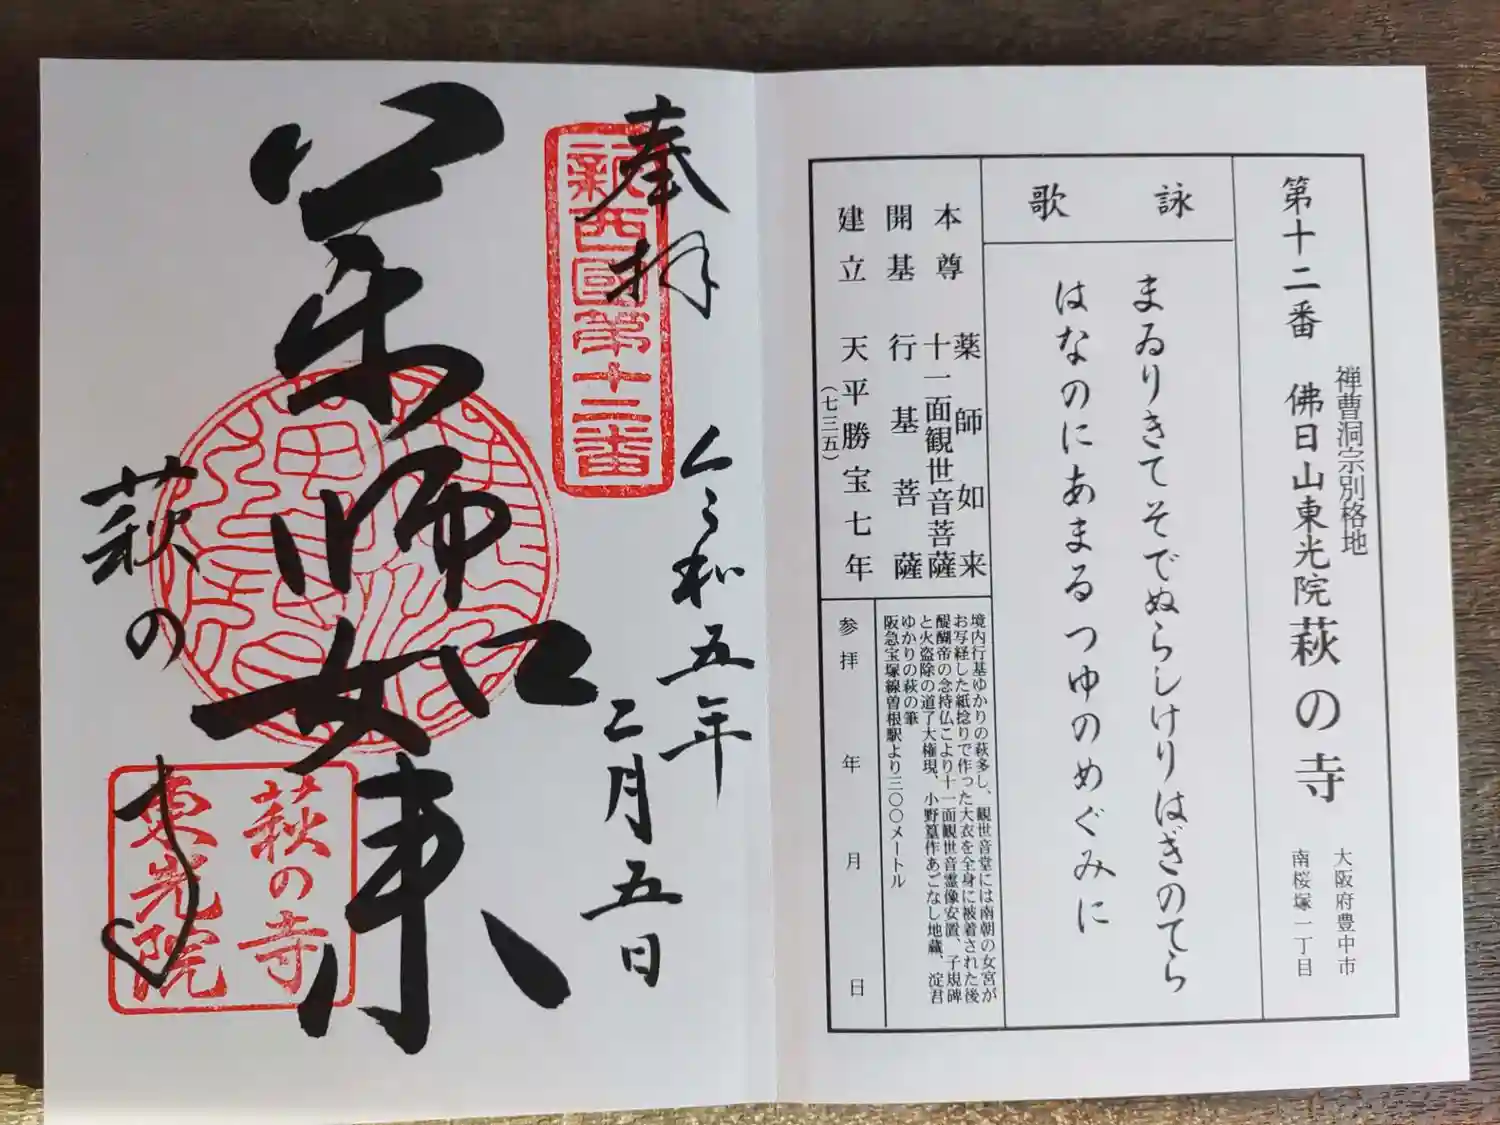 第十二番 佛日山東光院萩の寺
禅曹洞宗別格地
大阪府豊中市
南桜塚一丁目
詠歌
まゐりきてそでぬらしけりはぎのてら
はなのにあまるつゆのめぐみに
本尊 薬師如来
十一面観世音菩薩
開基 行基菩薩
建立 天平勝宝七年
(七三五)
境内行基ゆかりの萩多し、観世音堂には南朝の女宮が
お写経した紙捻りで作った大衣を全身に被着された後
醍醐帝の念持仏こより十一面観世音霊像安置、子規碑
と火盗除の道了大権現、小野篁作あごなし地蔵、淀君
ゆかりの萩の筆
阪急宝塚線曽根駅より三〇〇メートル
参拝 年 月 日
奉拝
新西國第十二番
令和五年
二月五日
薬師如来
萩の寺
萩の寺
東光院